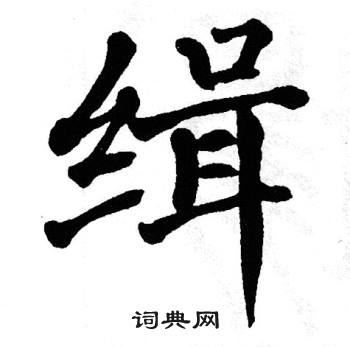 缉
词典网